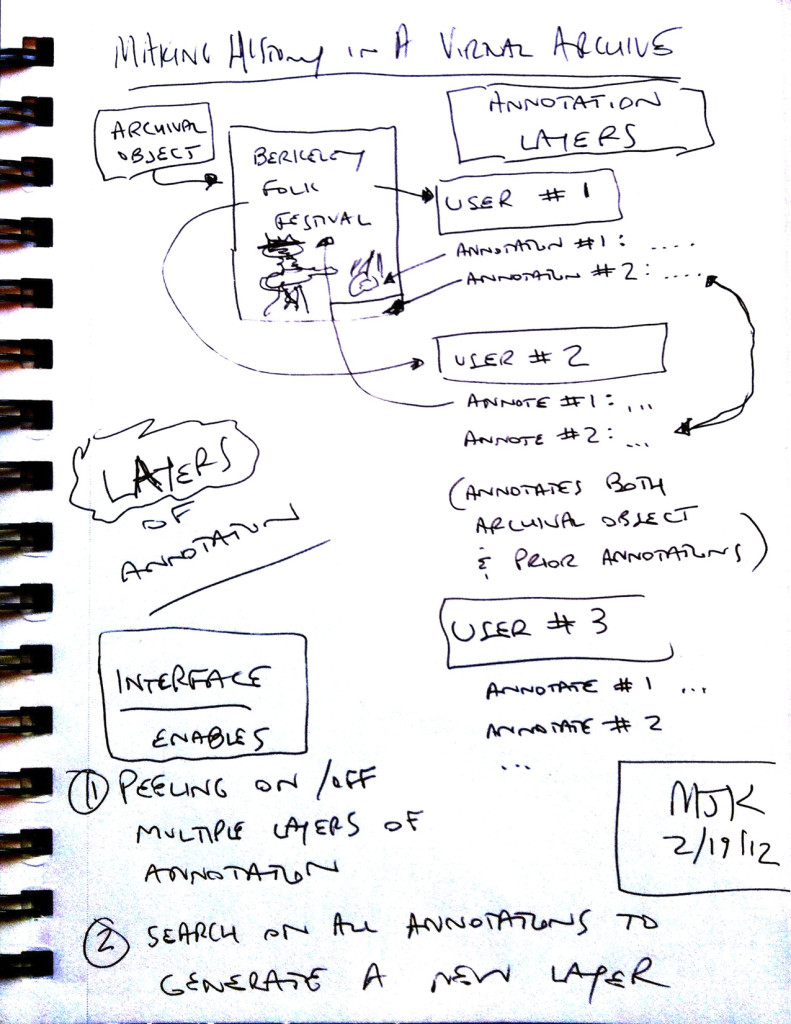 MAKING HISTORY IN A VIRTUAL ARCHIVE
ARCHIVAL
OBJECT
BERKELEY
FOLK
FESTIVAL
ANNOTATION
LAYERS
USER # 1
ANNOTATION #1: ....
ANNOTATION #2: ....
USER # 2
ANNOTE #1: ...
ANNOTE #2: ...
(ANNOTATES BOTH
ARCHIVAL OBJECT
& PRIOR ANNOTATIONS)
USER # 3
ANNOTATE #1 ...
ANNOTATE #2
...
LAYERS
OF
ANNOTATION
INTERFACE
ENABLES
① PEELING ON/OFF
MULTIPLE LAYERS OF
ANNOTATION
② SEARCH ON ALL ANNOTATIONS TO
GENERATE A NEW LAYER
MJK
2/19/12